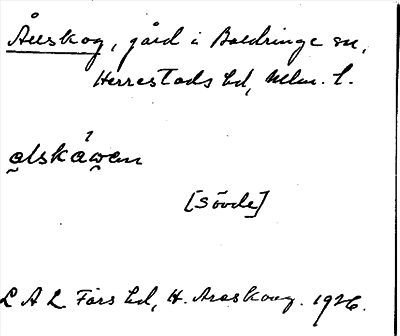 Åelskog, gård i Baldringe sn,
Herrestads hd, Mlm. l.
a̯lskáw̯an
[Sövde]
L A L. Färs hd, H. Areskoug. 1926.